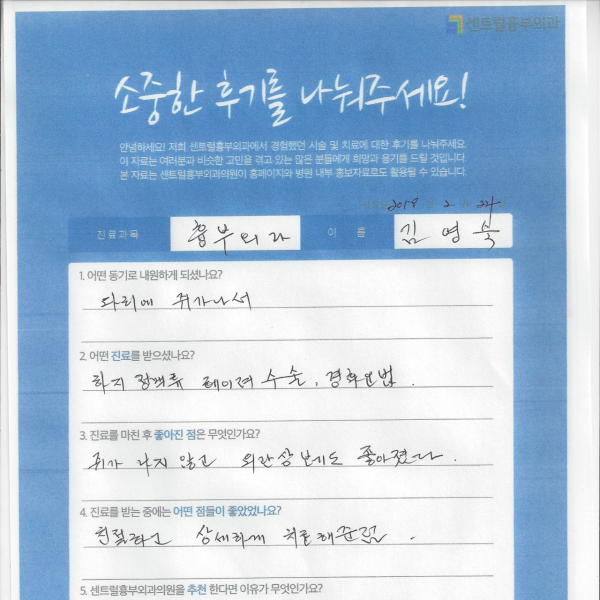 센트럴흉부외과
소중한 후기를 나눠주세요!
안녕하세요! 저희 센트럴흉부외과에서 경험했던 시술 및 치료에 대한 후기를 나눠주세요
이 자료는 여러분과 비슷한 고민을 겪고 있는 많은 분들에게 희망과 용기를 드릴 것입니다
본 자료는 센트럴흉부외과의원이 홈페이지와 병원 내부 홍보자료로도 활용될 수 있습니다.
2019 2 22
진료과목 흉부외과 이 름 김영숙
1. 어떤 동기로 내원하게 되셨나요?
다리에 쥐가나서
2. 어떤 진료를 받으셨나요?
하지 정맥류 레이져 수술, 경화요법.
3. 진료를 마친 후 좋아진 점은 무엇인가요?
쥐가 나지 않고 외관상 보기도 좋아졌다.
4. 진료를 받는 중에는 어떤 점들이 좋았었나요?
친절하고 상세하게 치료해준점.
5. 센트럴흉부외과의원을 추천 한다면 이유가 무엇인가요?